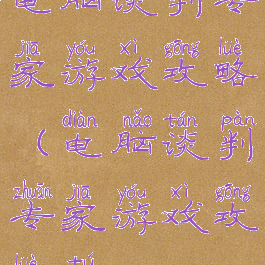 电脑谈判专
jiā yóu xì gōng lüè
家游戏攻略
diàn nǎo tán pàn
(电脑谈判
zhuān jiā yóu xì gōng
专家游戏攻